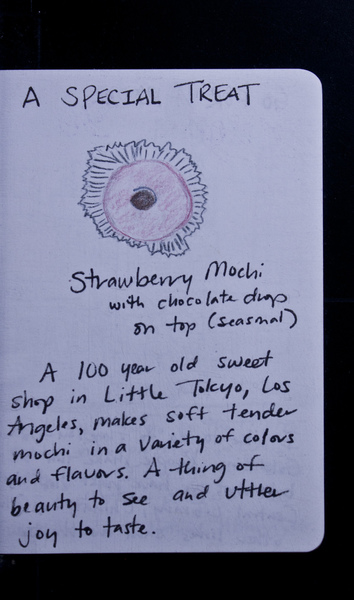 A SPECIAL TREAT
Strawberry Mochi
with chocolate drop
on top (seasonal)
A 100 year old sweet
shop in Little Tokyo, Los
Angeles, makes soft tender
mochi in a variety of colors
and flavors. A thing of
beauty to see and utter
joy to taste.